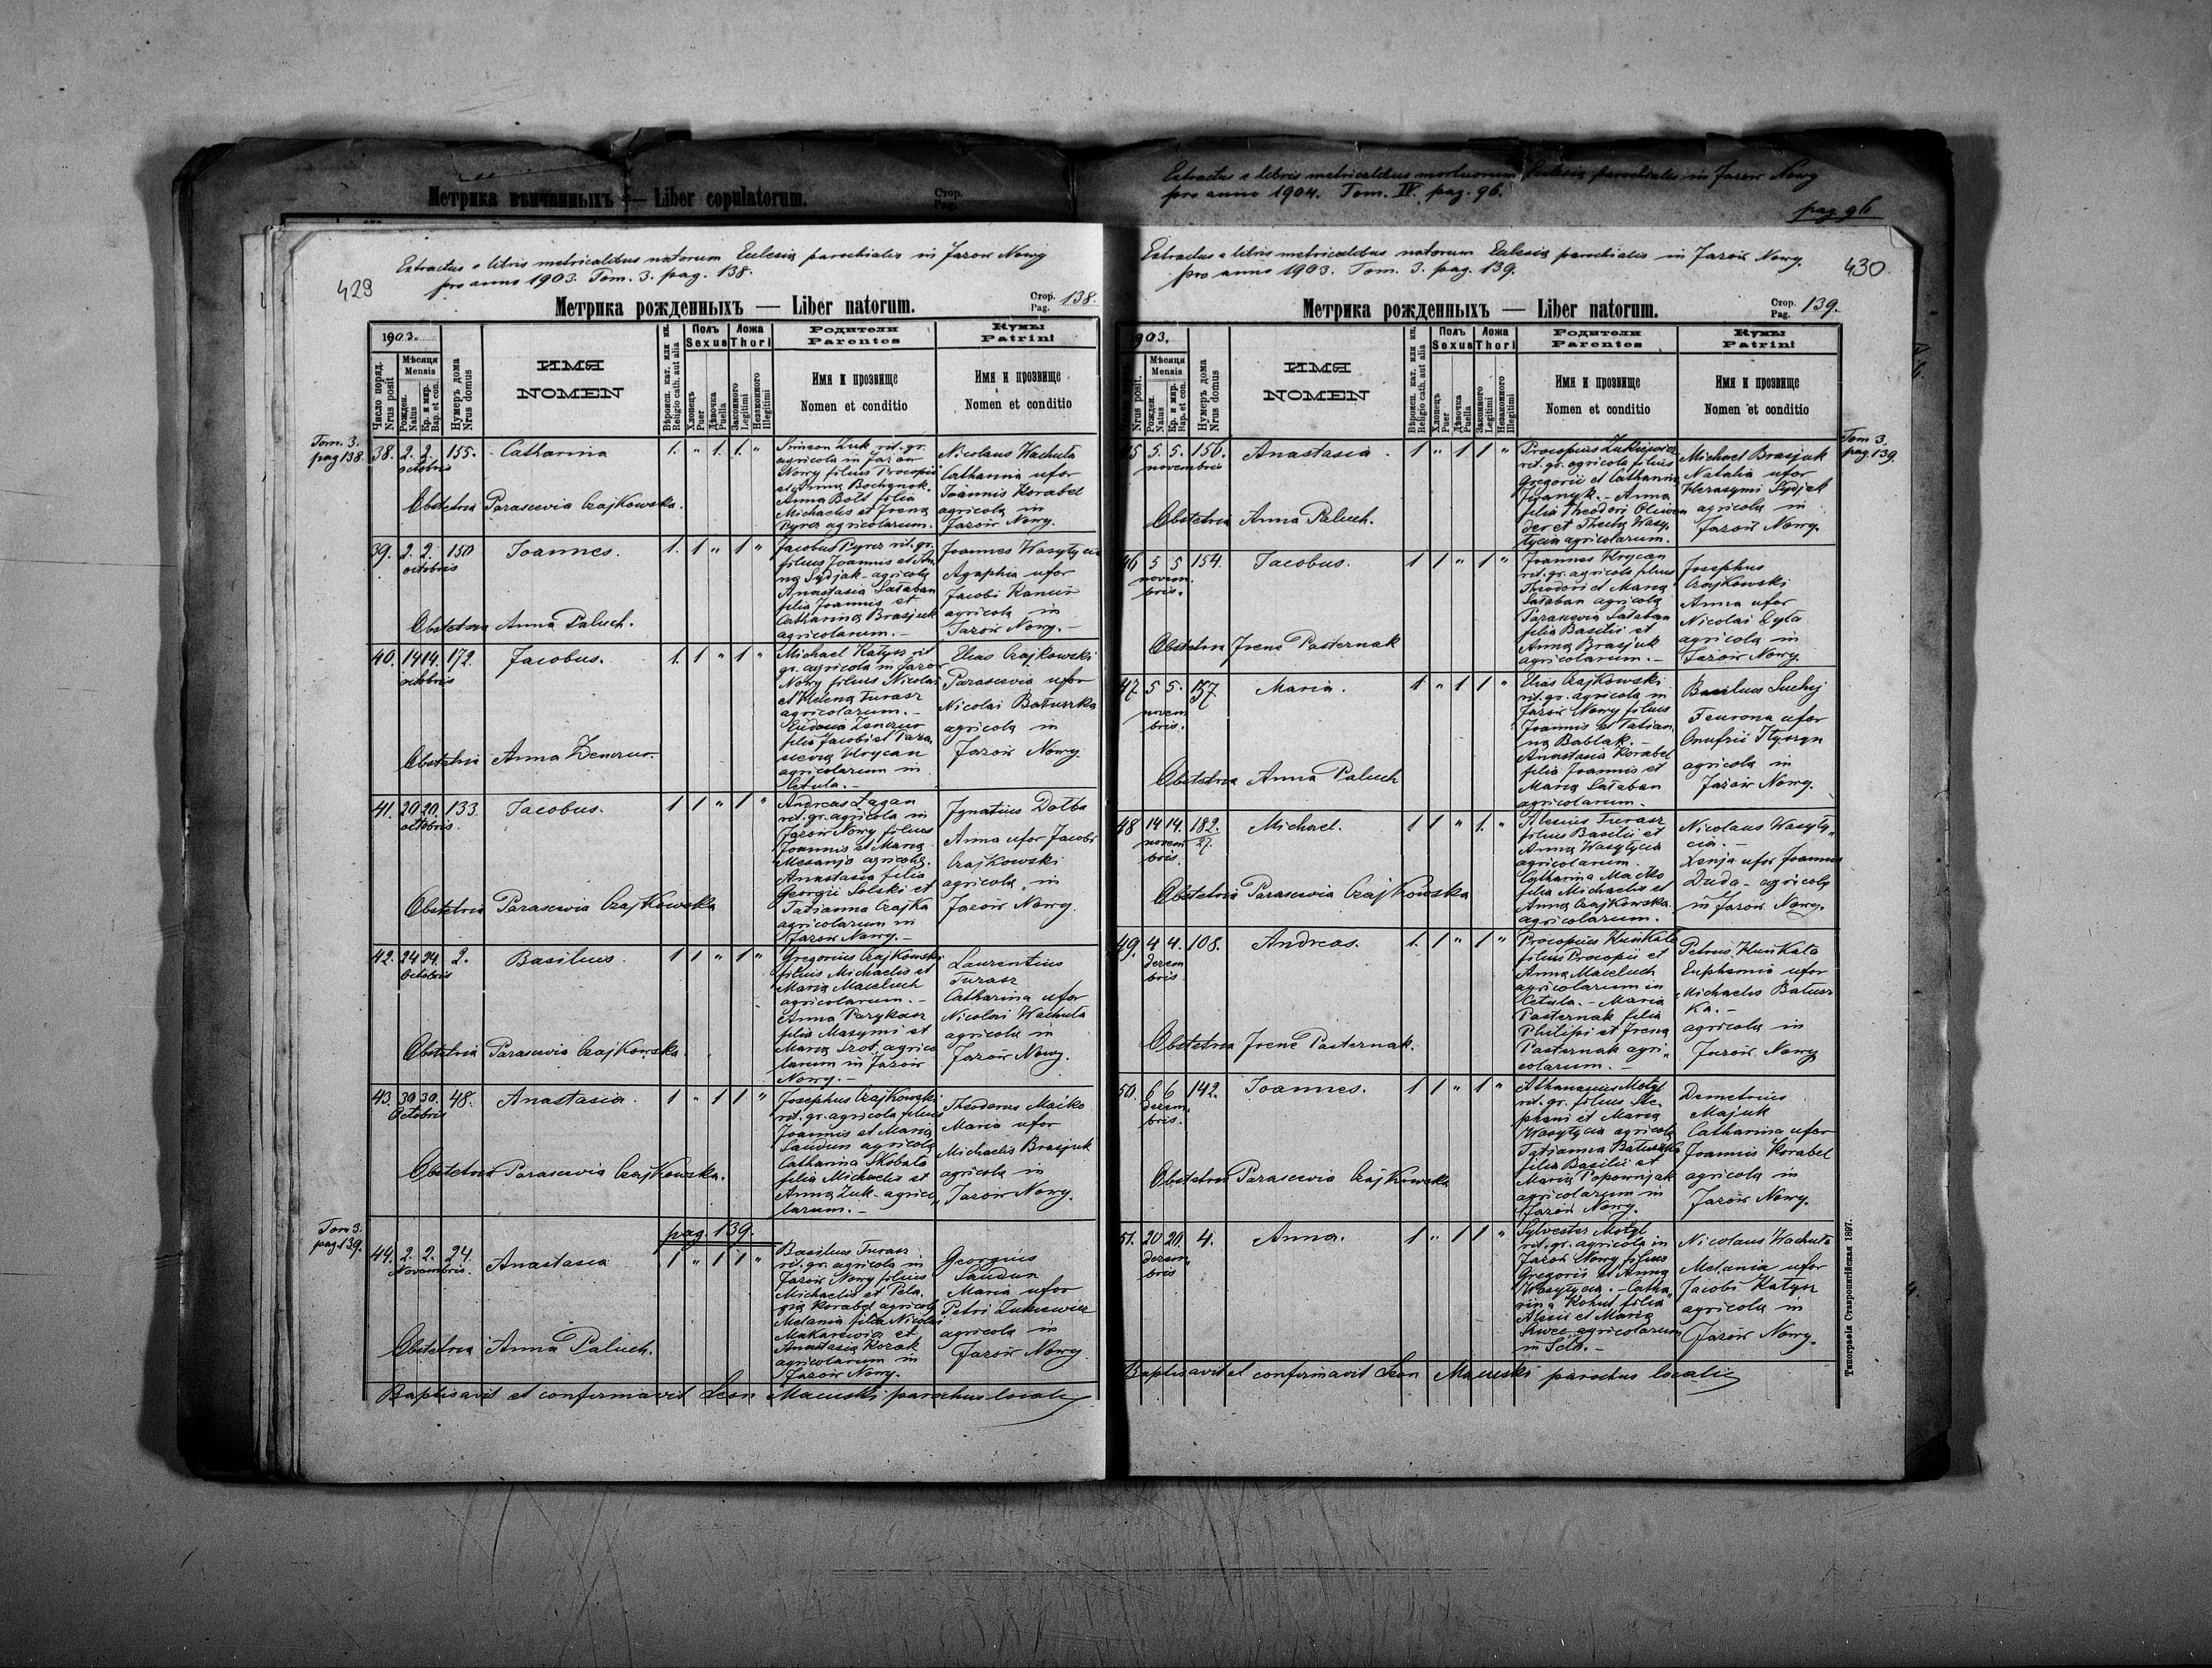 Метрика вѣнчанныхъ — Liber copulatorum.
Стор.
Pag.
Extractus e libris metricalibus mortuorum Eclesią parochialis in Jazow Nowy
pro anno 1904. Tom. IV. pag. 96.
pag 96
429
Extractus e libris metricalibus natorum Eclesią parochialis in Jazow Nowy
pro anno 1903. Tom. 3. pag. 138.
Метрика рожденныхъ — Liber natorum.
Стор.
Pag. 138.
1903.
Число поряд.
Nrus posit
Мѣсяця
Mensis
Рожден.
Natus
Кр. и мир.
Bap. et con.
Нумеръ дома
Nrus domus
ИМЯ
NOMEN
Вѣроисп. кат. или ин.
Religio cath. aut alia
Полъ
Sexus
Хлопецъ
Puer
Дѣвочка
Puella
Ложа
Thori
Законного
Legitimi
Незаконного
Illegitimi
Родители
Parentes
Имя и прозвище
Nomen et conditio
Кумы
Patrini
Имя и прозвище
Nomen et conditio
Tom. 3.
pag 138.
38. 2. 2. 155. Catharina 1. " 1. 1. "
octobris
Obstetrix Parascevia Czajkowska.
Simeon Zuk rit. gr.
agricola in Jazow
Nowy filius Procopii
et Anną Bochgnok.
Anna Bold filia
Michaelis et Ireną
Pyrcz agricolarum.
Nicolaus Wachuta
Catharina uxor
Joannis Korabel
agricolą in
Jazoir Nowy.
39. 2. 2. 150 Joannes. 1. 1 " 1 "
octobris
Obstetrix Anna Paluch.
Jacobus Pyrcz rit. gr.
filius Joannis et An
ną Sydjak - agricolą
Anastasia Sałaban
filia Joannis et
Cathariną Brasjuk
agricolarum. -
Joannes Wasytycia
Agaphia uxor
Jacobi Kanur
agricolą in
Jazoir Nowy. -
40. 14 14. 172. Jacobus. 1. 1 " 1 "
octobris
Obstetrix Anna Zenczur.
Michael Katysz rit
gr. agricola in Jazor
Nowy filius Nicolai
et Heleną Turasz
agricolarum. -
Eudocia Zenczur
filia Jacobi et Para
scevią Hrycan
agricolarum in
Cetula. -
Elias Czajkowski
Parascevia uxor
Nicolai Batuszka
agricolą in
Jazoir Nowy
41. 20 20. 133. Jacobus. 1 1 " 1 "
octobris.
Obstetrix Parascevia Czajkowska
Andreas Łagan
rit. gr. agricola in
Jazoir Nowy filius
Joannis et Marią
Mesanjo agricolą.
Anastasia filia
Georgii Solski et
Tatianną Czajka
agricolarum in
Jazoir Nowy. -
Ignatius Dołba
Anna uxor Jacobi
Czajkowski
agricolą in
Jazoir Nowy.
42. 24 24. 2. Basilius. 1 1 " 1 "
Octobris
Obstetrix Parascevia Czajkowska.
Gregorius Czajkowski
filius Michaelis et
Marią Maceluch
agricolarum. -
Anna Parykasz
filia Maxymi et
Marią Szot agrico
larum in Jazoir
Nowy. -
Laurentius
Turasz
Catharina uxor
Nicolai Wachuta
agricolą in
Jazoir Nowy.
43. 30 30. 48. Anastasia. 1 " 1 1 "
Octobris
Obstetrix Parascevia Czajkowska.
Josephus Czajkowski
rit. gr. agricola filius
Joannis et Marią
Laudun agricolą
Catharina Skobała
filia Michaelis et
Anną Zuk - agrico
larum. -
Theodorus Maćko
Maria uxor
Michaelis Brasjuk
agricolą in
Jazoir Nowy.
Tom 3.
pag. 139.
pag. 139.
44. 2. 2. 24. Anastasia 1 " 1 1 "
Novembris.
Obstetrix Anna Paluch.
Basilius Turasz
rit. gr. agricola in
Jazoir Nowy filius
Michaelis et Pela
gią Korabel agricolą
Melania filia Nicolai
Makarewia et
Anastasią Kozak
agricolarum in
Jazoir Nowy.
Georgius
Laudun
Maria uxor
Petri Zukiewicz
agricolą in
Jazoir Nowy
Baptisavit et confirmavit Leon Macieski parochus localis
430.
Extractus e libris metricalibus natorum Eclesią parochialis in Jazoir Nowy.
pro anno 1903. Tom. 3. pag. 139.
Метрика рожденныхъ — Liber natorum.
Стор.
Pag. 139.
1903.
Nrus posit.
Мѣсяця
Mensis
Рожден.
Natus
Кр. и мир.
Bap. et con.
Нумеръ дома
Nrus domus
ИМЯ
NOMEN
Вѣроисп. кат. или ин.
Religio cath. aut alia
Полъ
Sexus
Хлопецъ
Puer
Дѣвочка
Puella
Ложа
Thori
Законного
Legitimi
Незаконного
Illegitimi
Родители
Parentes
Имя и прозвище
Nomen et conditio
Кумы
Patrini
Имя и прозвище
Nomen et conditio
Tom 3.
pag. 139.
45 5. 5. 156. Anastasia 1 " 1 1 "
novembris
Obstetrix Anna Paluch.
Procopius Zukiewicz
rit. gr. agricola filius
Gregorii et Catharina
Iwanyk. - Anna
filia Theodori Oliwen
der et Theclą Wasy,
tycia agricolarum.
Michael Brasjuk
Natalia uxor
Herasymi Sydjak
agricolą in
Jazoir Nowy.
46 5 5 154. Jacobus. 1 1 " 1 "
novem.
bris.
Obstetrix Irene Pasternak
Joannes Hrycan
rit. gr. agricola filius
Theodori et Marią
Sałaban agricolą
Paraskevia Sałaban
filia Basilii et
Anną Brasjuk
agricolarum. -
Josephus
Czajkowski
Anna uxor
Nicolai Cyła
agricolą in
Jazoir Nowy.
47. 5 5. 157. Maria. 1 " 1 1 "
novem
bris.
Obstetrix Anna Paluch
Elias Czajkowski
rit. gr. agricola in
Jazoir Nowy filius
Joannis et Tatian,
ną Bablak. -
Anastasia Korabel
filia Joannis et
Marią Sałaban
agricolarum. -
Basilius Suchyj
Feurona uxor
Onufrii
agricolą in
Jazoir Nowy.
48 14 14. 182. Michael. 1 1 " 1. "
27.
novem
bris.
Obstetrix Parascevia Czajkowska
Alexius Turasz
filius Basilii et
Anną Wasytycia
agricolarum.
Catharina Maćko
filia Michaelis et
Anną Czajkowska.
agricolarum.
Nicolaus Wasyty,
cia. -
Xenja uxor Joannis
Duda - agricolą
in Jazoir Nowy.
49. 4 4. 108. Andreas. 1. 1 " 1 "
dezem
bris
Obstetrix Irene Pasternak.
Procopius Huńkało
filius Procopii et
Anną Maceluch
agricolarum in
Cetula. - Maria
Pasternak filia
Philipi et Ireną
Pasternak agri,
colarum. -
Petrus Huńkała
Euphemia uxor
Michaelis Batusz
ka. -
agricolą in
Jazoir Nowy
50. 6 6 142. Joannes. 1 1 " 1 "
dezem.
bris.
Obstetrix Parascevia Czajkowska
Athanasius Motyl
rit. gr. filius Ste,
phani et Marią
Wasytycia agricolą
Tatjanna Batuszka
filia Basilii et
Marią Papownjak
agricolarum in
Jazoir Nowy.
Demetrius
Majuk
Catharina uxor
Joannis Korabel
agricolą in
Jazoir Nowy.
51. 20 20. 4. Anna. 1 " 1 1 "
dezem,
bris
Sylvester Motyl
rit. gr. agricola in
Jazoir Nowy filius
Gregorii et Anną
Wasytycia. - Catha,
rina Kohut filia
Alexii et Marią
agricolarum
in Sclo. -
Nicolaus Wachuta
Melania uxor
Jacobi Katysz
agricolą in
Jazoir Nowy.
Baptisavit et confirmavit Leon Macieski parochus localis
Типографія Ставропигійская 1897.